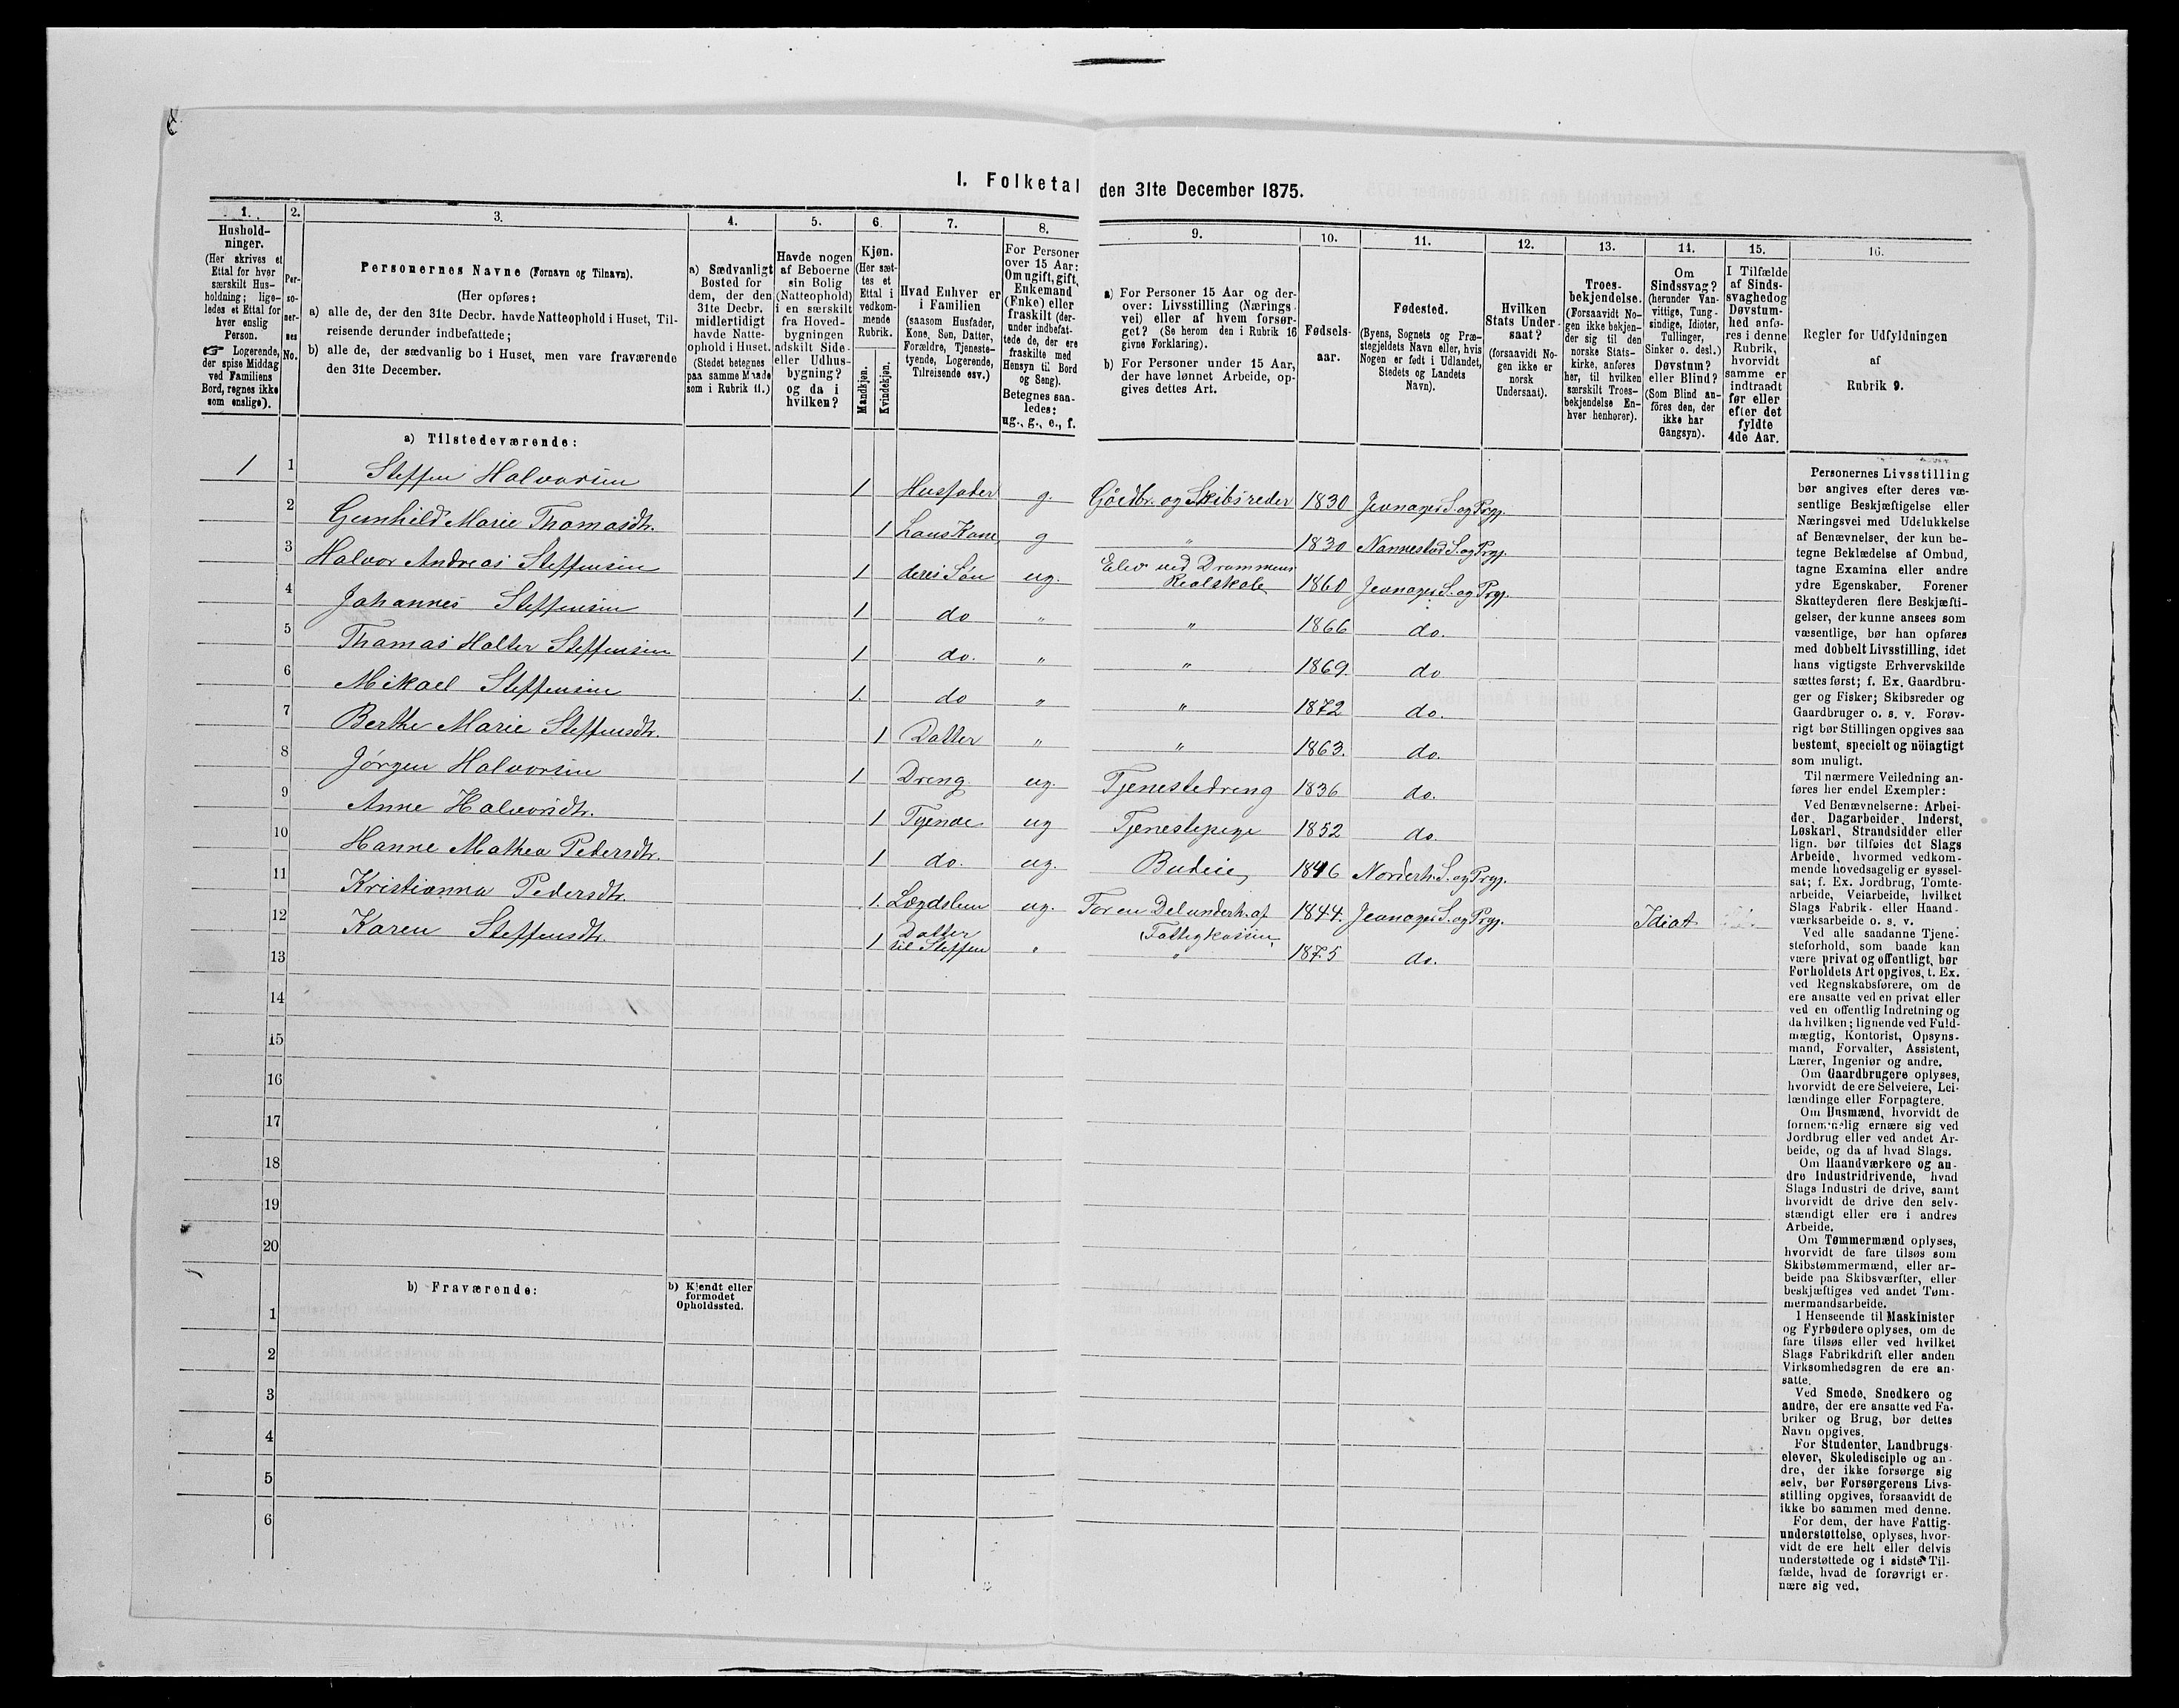 I. Folketal den 31te December 1875.
1.
Hushold-
ninger.
(Her skrives et
Ettal for hver
særskilt Hus-
holdning; lige-
ledes et Ettal for
hver enslig
Person.
☞ Logerende,
der spise Middag
ved Familiens
Bord, regnes ikke
som enslige).
2.
Per-
so-
ner-
nes
No.
3.
Personernes Navne (Fornavn og Tilnavn).
(Her opføres:
a) alle de, der den 31te Decbr. havde Natteophold i Huset, Til-
reisende derunder indbefattede;
b) alle de, der sædvanlig bo i Huset, men vare fraværende
den 31te December.
4.
a) Sædvanligt
Bosted for
dem, der den
31te Decbr.
midlertidigt
havde Natte-
ophold i Huset.
(Stedet betegnes
paa samme Maade
som i Rubrik 11.)
5.
Havde nogen
af Beboerne
sin Bolig
(Natteophold)
i en særskilt
fra Hoved-
bygningen
adskilt Side-
eller Udhus-
bygning?
og da i
hvilken?
6.
Kjøn.
(Her sæt-
tes et
Ettal i
vedkom-
mende
Rubrik.
Mandkjøn.
Kvindekjøn.
7.
Hvad Enhver er
i Familien
(saasom Husfader,
Kone, Søn, Datter,
Forældre, Tjeneste-
tyende, Logerende,
Tilreisende osv.)
8.
For Personer
over 15 Aar:
Om ugift, gift,
Enkemand
(Enke) eller
fraskilt (der-
under indbefat-
tede de, der ere
fraskilte med
Hensyn til Bord
og Seng).
Betegnes saa-
ledes:
ug., g., e., f.
9.
a) For Personer 15 Aar og der-
over: Livsstilling (Nærings-
vei) eller af hvem forsør-
get? (Se herom den i Rubrik 16
givne Forklaring).
b) For Personer under 15 Aar,
der have lønnet Arbeide, op-
gives dettes Art.
10.
Fødsels-
aar.
11.
Fødested.
(Byens, Sognets og Præ-
stegjeldets Navn eller, hvis
Nogen er født i Udlandet,
Stedets og Landets
Navn).
12.
Hvilken
Stats Under-
saat?
(forsaavidt No-
gen ikke er
norsk
Undersaat).
13.
Troes-
bekjendelse.
(Forsaavidt No-
gen ikke bekjen-
der sig til den
norske Stats-
kirke, anføres
her, til hvilken
særskilt Troes-
bekjendelse En-
hver henhører).
14.
Om
Sindssvag?
(herunder Van-
vittige, Tung-
sindige, Idioter,
Tullinger,
Sinker o. desl.)
Døvstum?
eller Blind?
(Som Blind an-
föres den, der
ikke har
Gangsyn).
15.
I Tilfælde
af Sinds-
svaghed og
Døvstum-
hed anfø-
res i denne
Rubrik,
hvorvidt
samme er
indtraadt
før eller
efter det
fyldte
4de Aar.
16.
Regler for Udfyldningen
af
Rubrik 9.
a) Tilstedeværende:
1 1 Steffen Halvorsen 1 Husfader g. Gådbr. og Skibsreder 1830 Jevnager S. og Prgj.
2 Gunhild Marie Thomasdtr. 1 hans Kone g " 1830 Nannestad S. og Prgj.
3 Halvor Andreas Steffensen 1 deres Søn ug. Elev ved Drammens Realskole 1860 Jevnager S. og Prgj.
4 Johannes Steffensen 1 do " " 1866 do.
5 Thomas Holter Steffensen 1 do. " " 1869. do
6 Mikael Steffensen 1. do " " 1872 do.
7 Berthe Marie Steffensdtr. 1 Datter " " 1863. do.
8 Jörgen Halvorsen 1 Dreng ug. Tjenestedreng 1836 do.
9 Anne Halvorsdtr. 1 Tyende ug Tjenestepige 1852 do.
10 Hanne Mathea Pedersdtr. 1 do. ug. Budeie 1846 Norderh. S. og Prgj.
11 Kristianna Pedersdtr. 1. Lægdslem ug. For en Del underh. af Fattigkassen 1844. Jevnager S. og Prgj. Idiot
12 Karen Steffensdtr. 1 Datter til Steffen " " 1875 do.
13
14
15
16
17
18
19
20
b) Fraværende:
b) Kjendt eller
formodet
Opholdssted.
1
2
3
4
5
6
Personernes Livsstilling
bør angives efter deres væ-
sentlige Beskjæftigelse eller
Næringsvei med Udelukkelse
af Benævnelser, der kun be-
tegne Beklædelse af Ombud,
tagne Examina eller andre
ydre Egenskaber. Forener
Skatteyderen flere Beskjæfti-
gelser, der kunne ansees som
væsentlige, bør han opføres
med dobbelt Livsstilling, idet
hans vigtigste Erhvervskilde
sættes først; f. Ex. Gaardbru-
ger og Fisker; Skibsreder og
Gaardbruger o. s. v. Forøv-
rigt bør Stillingen opgives saa
bestemt, specielt og nöiagtigt
som muligt.
Til nærmere Veiledning an-
føres her endel Exempler:
Ved Benævnelserne: Arbei-
der, Dagarbeider, Inderst,
Løskarl, Strandsidder eller
lign. bør tilføies det Slags
Arbeide, hvormed vedkom-
mende hovedsagelig er syssel-
sat; f. Ex. Jordbrug, Tomte-
arbeide, Veiarbeide, hvilket
Slags Fabrik- eller Haand-
værksarbeide o. s. v.
Ved alle saadanne Tjene-
steforhold, som baade kan
være privat og offentligt, bør
Forholdets Art opgives, t. Ex.
ved Regnskabsførere, om de
ere ansatte ved en privat eller
ved en offentlig Indretning og
da hvilken; lignende ved Fuld-
mægtig, Kontorist, Opsyns-
mand, Forvalter, Assistent,
Lærer, Ingeniør og andre.
Om Gaardbrugere oplyses,
hvorvidt de ere Selveiere, Lei-
lændinge eller Forpagtere.
Om Husmænd, hvorvidt de
fornemmelig ernære sig ved
Jordbrug eller ved andet Ar-
beide, og da af hvad Slags.
Om Haandværkere og an-
dre Industridrivende, hvad
Slags Industri de drive, samt
hvorvidt de drive den selv-
stændigt eller ere i andres
Arbeide.
Om Tømmermænd oplyses,
hvorvidt de fare tilsøs som
Skibstømmermænd, eller ar-
beide paa Skibsværfter, eller
beskjæftiges ved andet Tøm-
mermandsarbeide.
I Henseende til Maskinister
og Fyrbødere oplyses, om de
fare tilsøs eller ved hvilket
Slags Fabrikdrift eller anden
Virksomhedsgren de ere an-
satte.
Ved Smede, Snedkere og
andre, der ere ansatte ved Fa-
briker og Brug, bør dettes
Navn opgives.
For Studenter, Landbrugs-
elever, Skoledisciple og an-
dre, der ikke forsørge sig
selv, bør Forsørgerens Livs-
stilling opgives, forsaavidt de
ikke bo sammen med denne.
For dem, der have Fattig-
understøttelse, oplyses, hvor-
vidt de ere helt eller delvis
understøttede og i sidste Til-
fælde, hvad de forøvrigt er-
nære sig ved.